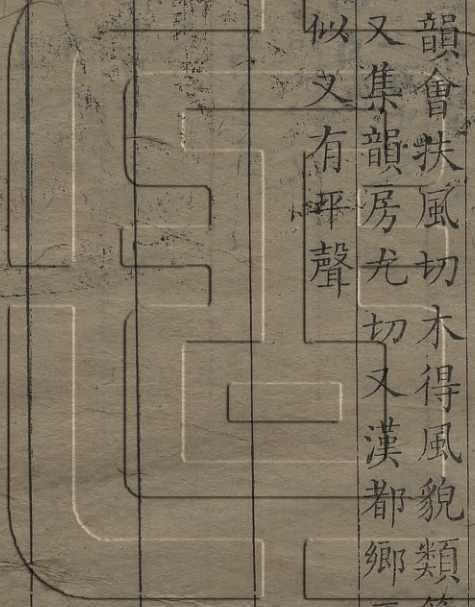 韻會扶風切木得風貌類
又集韻房尤切又漢都鄉
似又有平聲